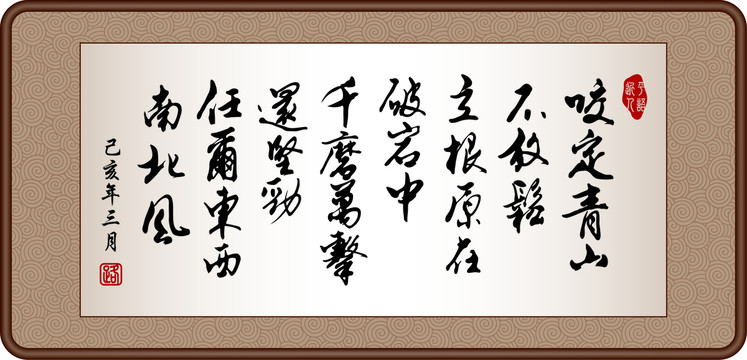 咬定青山
不放鬆
立根原在
破岩中
千磨萬擊
還堅勁
任爾東西
南北風
己亥年三月
路